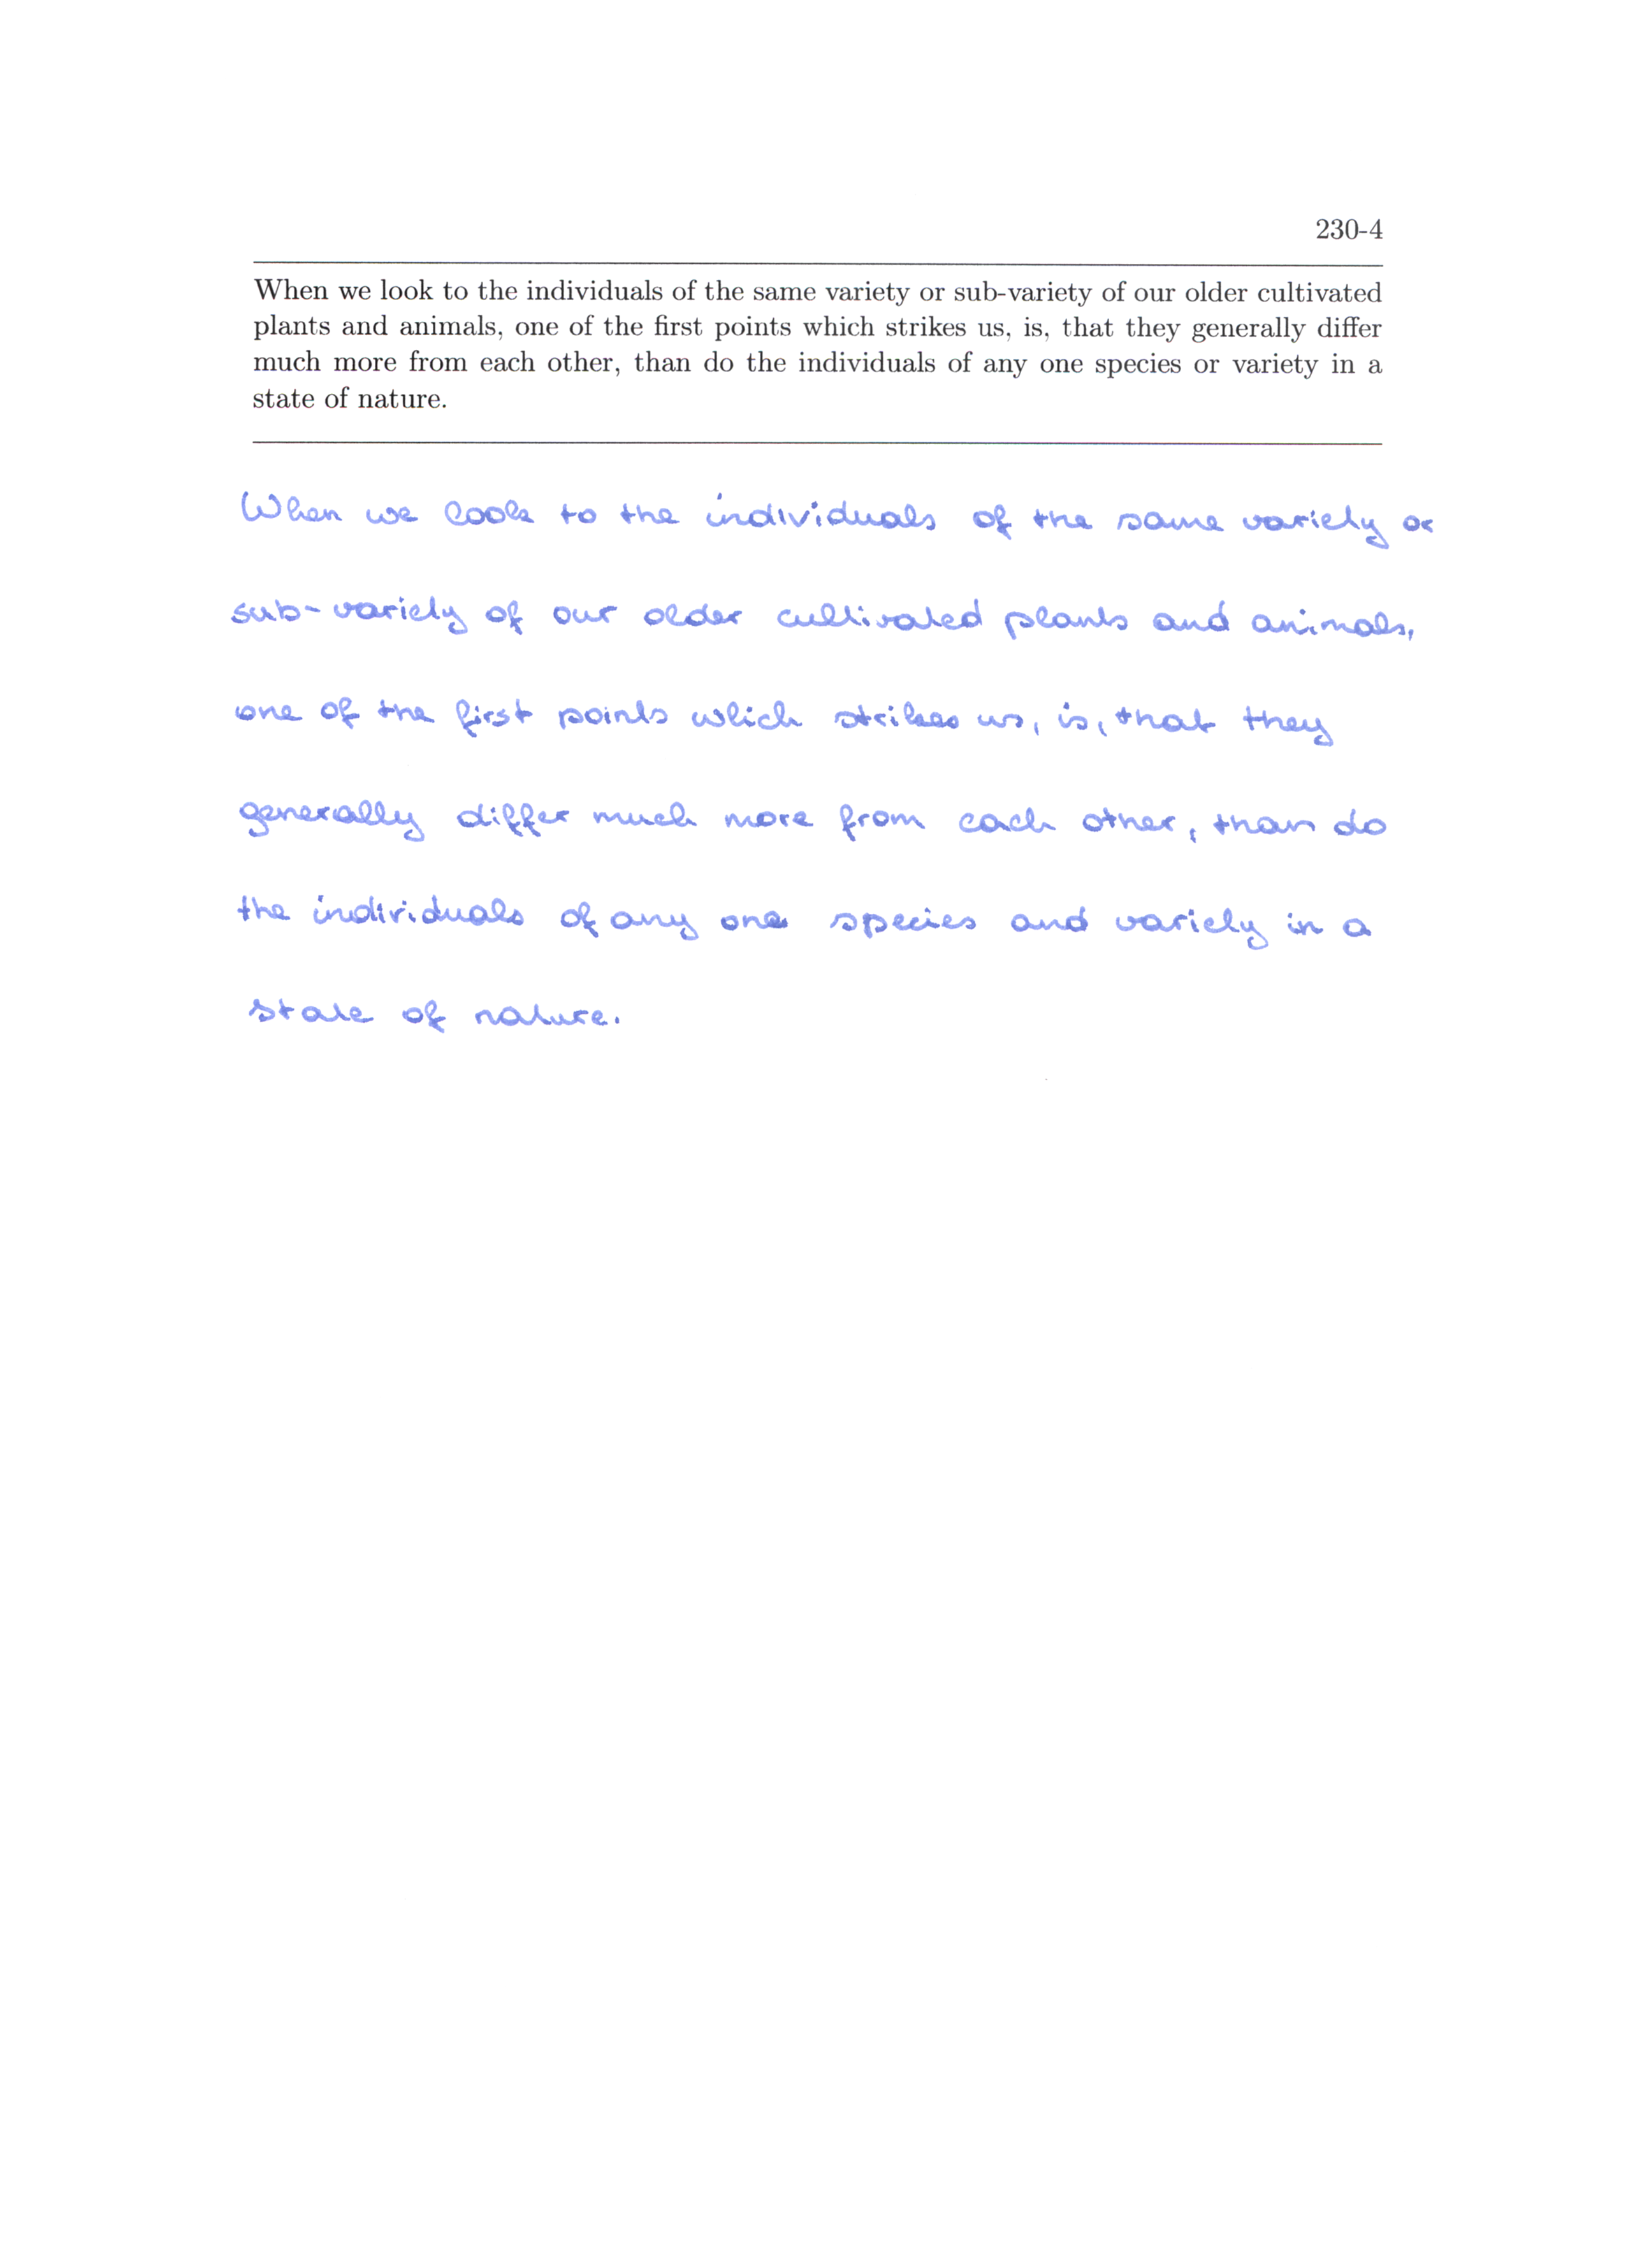 230-4
When we look to the individuals of the same variety or sub-variety of our older cultivated
plants and animals, one of the first points which strikes us, is, that they generally differ
much more from each other, than do the individuals of any one species or variety in a
state of nature.
When we look to the individuals of the same variety or
sub-variety of our older cultivated plants and animals,
one of the first points which strikes us, is, that they
generally differ much more from each other, than do
the individuals of any one species and variety in a
state of nature.